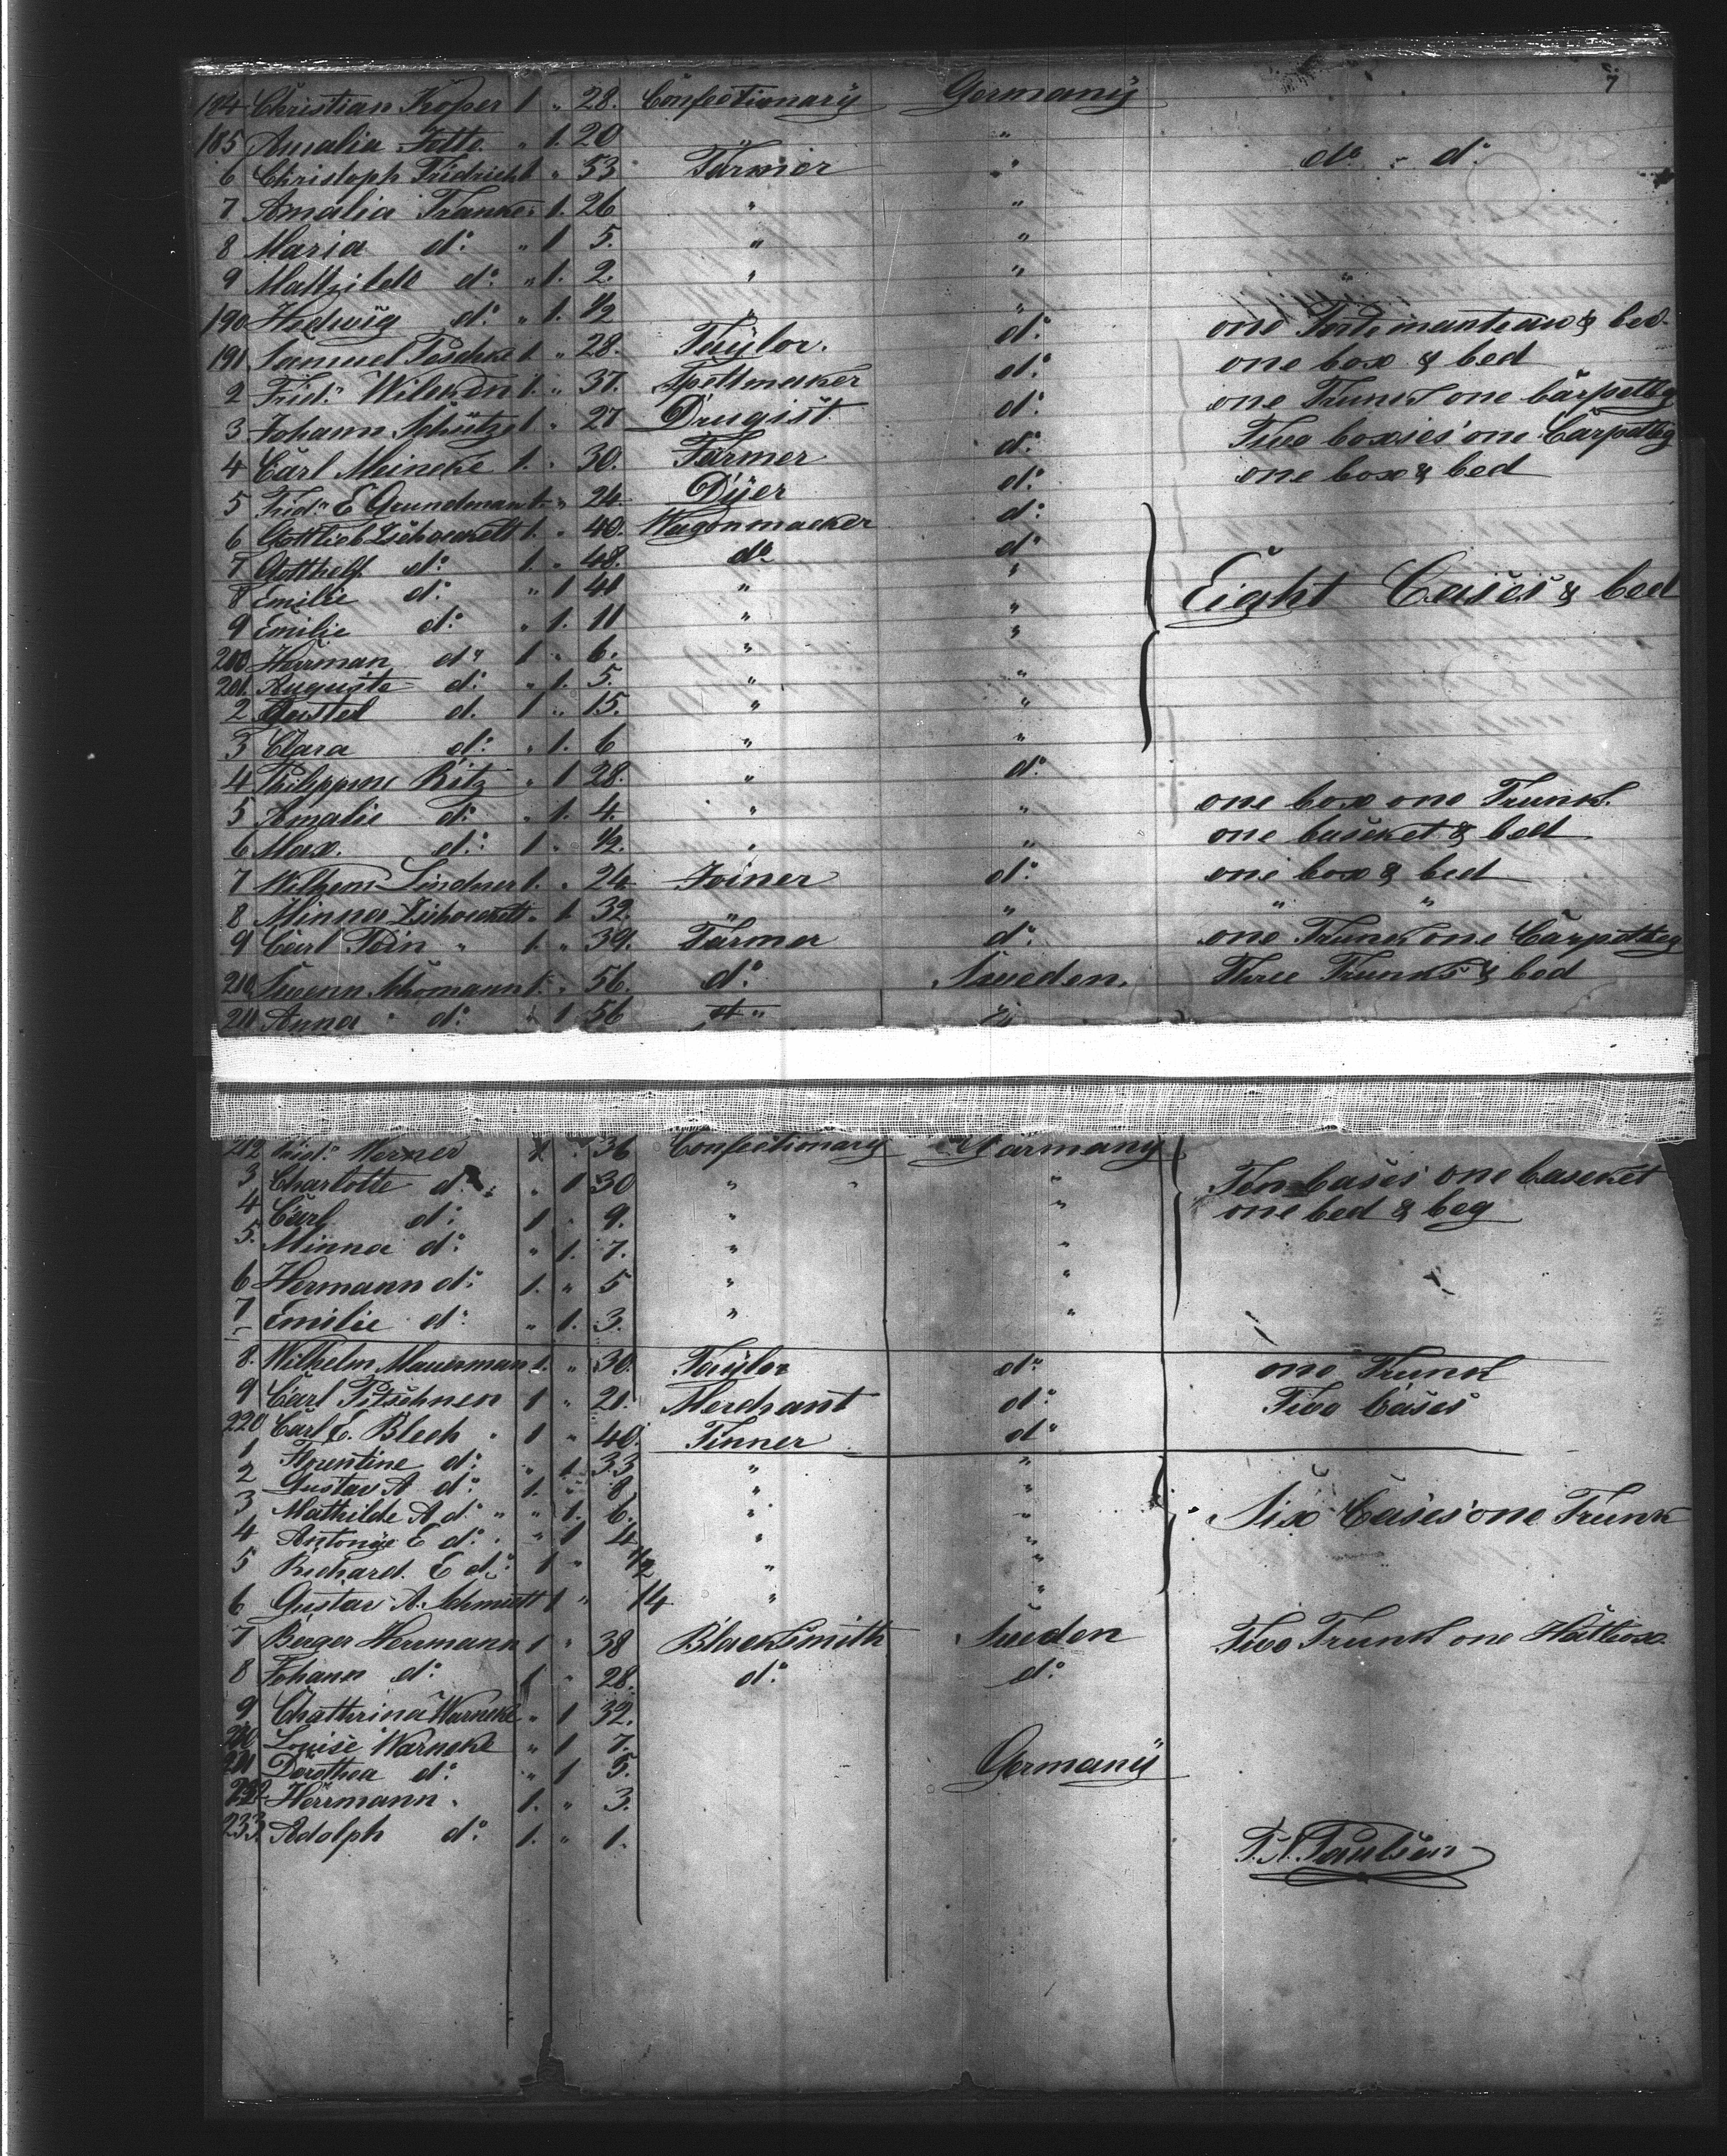 7
184 Christian Koper 1 " 28. Confectionary Germany
185 Amalia Totte " 1. 20 " "
6 Christoph Fridrich 1 " 53 Farmer " do - do
7 Amalia Franke " 1. 26 " "
8 Maria do " 1 5. " "
9 Mathilde do " 1. 2. " " "
190 Hedwig do " 1. 1/2 " "
191 Samuel Peschke 1 " 28. Taylor. do one Portemanteau & bed
2 Frid. Wilcken 1. " 37. maker do one box & bed
3 Johann Schütze 1 " 27 Drugist do one Trunk one Carpetbg
4 Carl Meineke 1. " 30. Farmer do Two boxses one Carpetbg
5 Frid. E Grundmann 1. " 24 Dÿer do one box & bed
6 Gottlieb Zschoerkelt 1. " 40. Wagonmacker do
7 Gotthelf do 1. " 48. do do
8 Emilie do " 1 41 " " Eight Cases & bed
9 Emilie do " 1. 11 " "
200 Herman do 1 " 6. " "
201. Auguste do " 1. 5. " "
2 Gustel d. 1 " 15. " "
3 Clara do " 1. 6 " "
4 Philippine Ritz " 1 28. " do
5 Amalie do " 1. 4. " " one box one Trunk.
6 Max. do 1. " 1/2. " " one basceket & bed
7 Wilhem Lindner 1. " 24 Joiner do one box & bed
8 Minna Zschoerkelt " 1. 32. " " " "
9 Carl Poin " 1. " 39. Farmer do one Trunk one Carpetbeg
210 Thomann 1. " 56. do Sweden. Three Trunks & bed
211 Anna do " 1 56 "
212 Frid. Werner 1. " 36 Confectionary Garmany
3 Charlotte do " 1 30 " " " Ten Cases one basceket
4 Carl do 1 " 9. " " one bed & beg
5. Minna do " 1. 7. " "
6 Hermann do 1. " 5 " "
7 Emilie do " 1. 3. " "
8. Wilhelm Mauerman 1. " 30. Taÿlor do one Trunk
9 Carl Pitschnen 1 " 20. Merchant do Two Cases
220 Carl E. Blech " 1 " 40. Tinner do
1 Florentine do " 1 33 " "
2 Gustav A do 1. " 8 " "
3 Mathilde A do " " 1. 6. " " Six Cases one Trunk
4 Antonie E do " 1 4 " "
5 Richard. E do 1 " 1/2 " "
6 Gustav A. Schmidt 1 " 14 " "
7 Berger Herrmann 1 " 38 BlackSmith Sueden Two Trunk one Hatbox
8 Johann do 1 " 28. do do
9 Chatterina Warneke " 1 32.
230 Louise Warneke " 1 7.
231 Dorothea do " 1 5. Germanÿ
232 Herrmann. 1. " 3.
233. Adolph do 1. " 1.
Paulsen